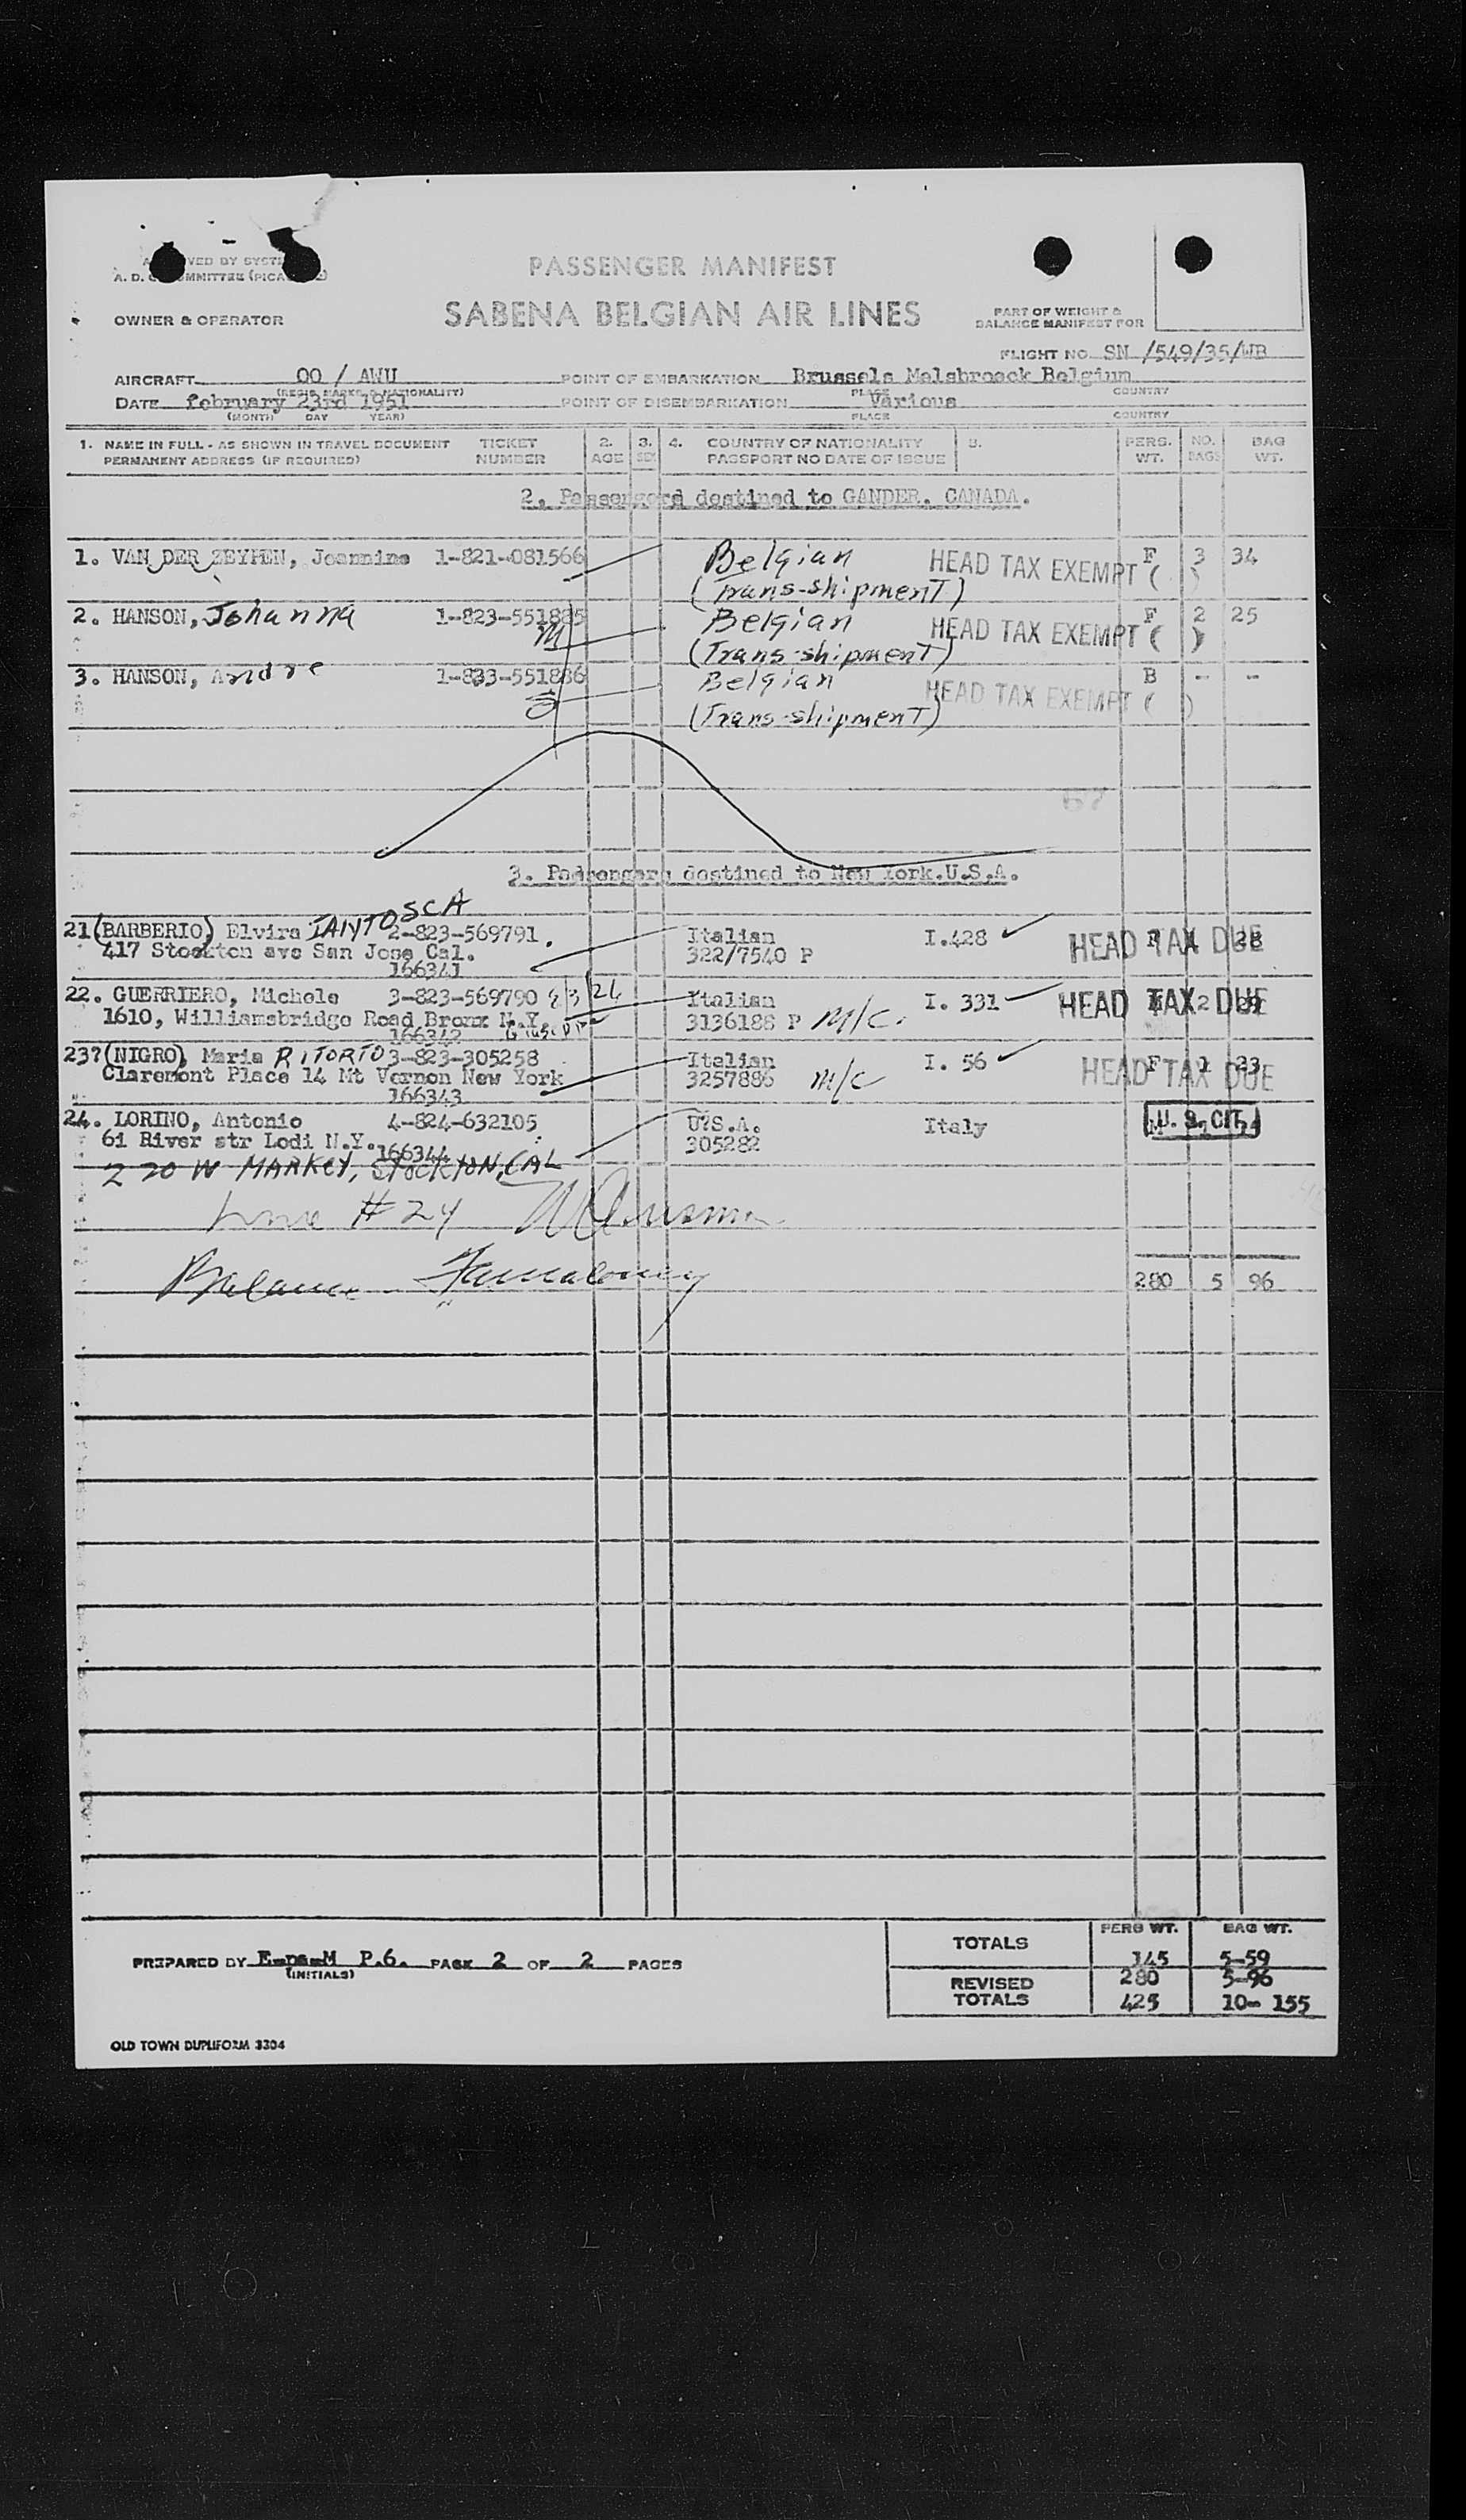 PASSENGER MANIFEST
SABENA BELGIAN AIR LINES
OWNER & OPERATOR
PART OF WEIGHT &
BALANCE MANIFEST FOR
FLIGHT NO. SN /549/35/WB
AIRCRAFT OO / AWU POINT OF EMBARKATION Brussels Melsbroeck Belgium
DATE february 23rd 1951 POINT OF DISEMBARKATION Various
(MONTH) DAY YEAR) PLACE COUNTRY
1. NAME IN FULL - AS SHOWN IN TRAVEL DOCUMENT TICKET 2. 3. 4. COUNTRY OF NATIONALITY 5. PERS. NO. BAG
PERMANENT ADDRESS (IF REQUIRED) NUMBER AGE SEX PASSPORT NO DATE OF ISSUE WT. BAGS WT.
2. Passengers destined to GANDER. CANADA.
1. VAN DER ZEYPEN, Jeannine 1-821-081566 Belgian HEAD TAX EXEMPT ( ) F 3 34
(Trans-shipment)
2. HANSON, Johanna 1-823-551885 Belgian HEAD TAX EXEMPT ( ) F 2 25
M (Trans-shipment)
3. HANSON, Andre 1-833-551886 Belgian HEAD TAX EXEMPT ( ) B - -
(Trans-shipment)
67
3. Passengers destined to New York.U.S.A.
21 (BARBERIO) Elvira IANTOSCA 2-823-569791. Italian I.428 HEAD TAX DUE F 28
417 Stockton ave San Jose Cal. 322/7540 P
166341
22. GUERRIERO, Michele 3-823-569790 Italian I. 331 HEAD TAX DUE 2
1610, Williamsbridge Road Bronx N.Y. 3136188 P M/C.
166342
23? (NIGRO), Maria RITORTO 3-823-305258 Italian I. 56 HEAD TAX DUE F 1 23
Claremont Place 14 Mt Vernon New York 3257886 M/C
166343
24. LORINO, Antonio 4-824-632105 U.S.A. Italy U.S. CIT.
61 River str Lodi N.Y. 166344 305282
220 W MARKET, STOCKTON, CAL
Line #24
Balance
280 5 96
TOTALS PERS WT. BAG WT.
145 5-59
PREPARED BY E-ps-M P.6. PAGE 2 OF 2 PAGES
(INITIALS)
REVISED 280 5-96
TOTALS 425 10- 155
OLD TOWN DUPLIFORM 3304